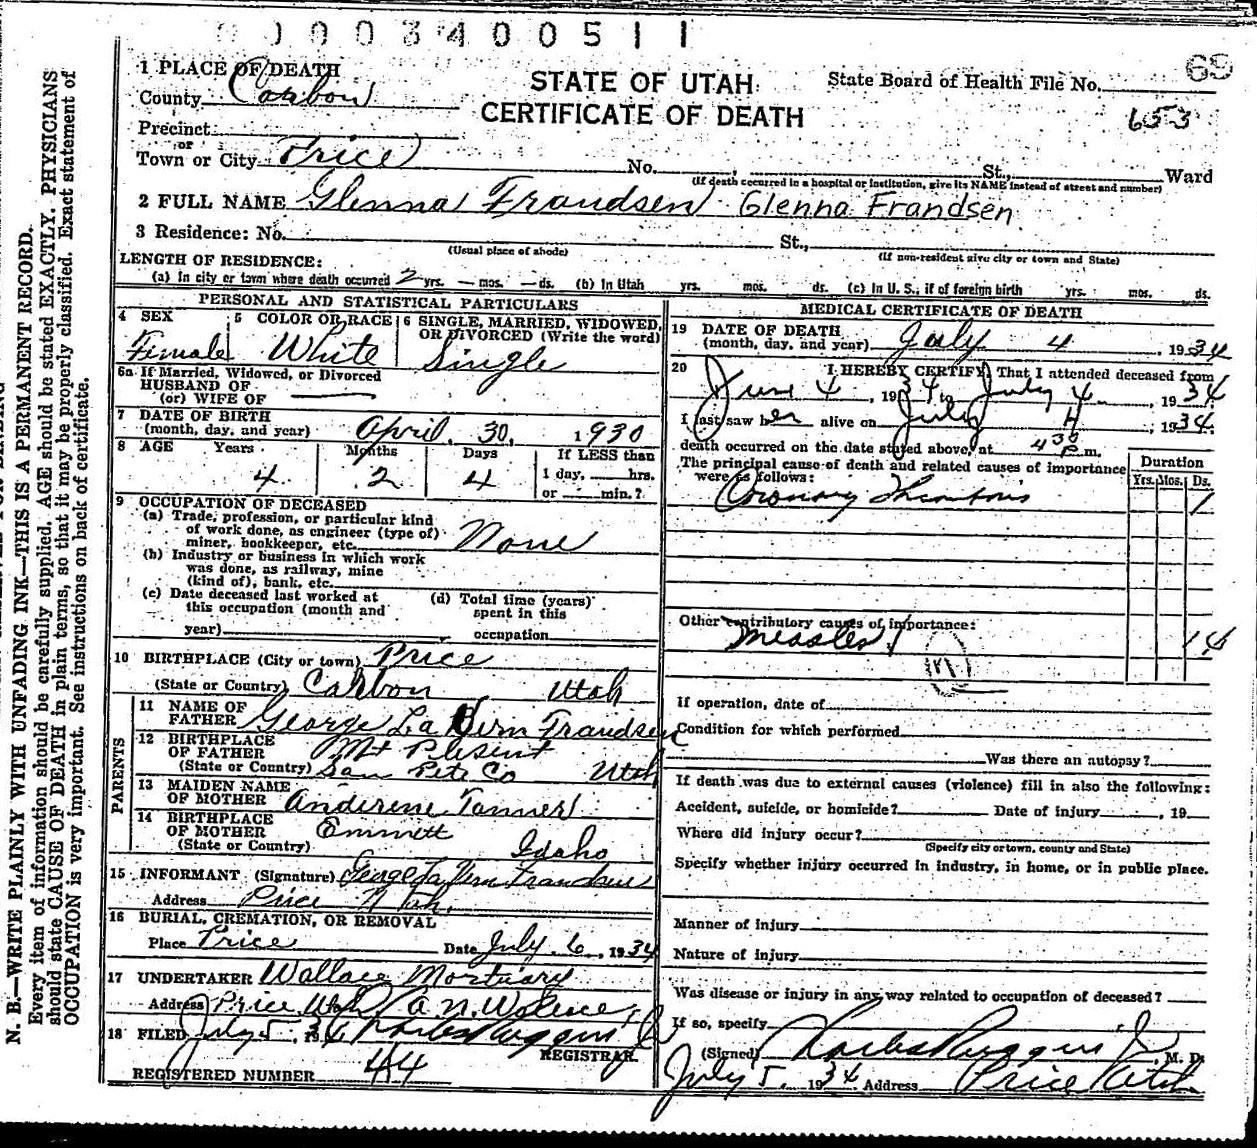 0 0 0 0 3 4 0 0 5 1 1
69
1 PLACE OF DEATH
STATE OF UTAH
CERTIFICATE OF DEATH
State Board of Health File No.
653
County Carbon
Precinct
or
Town or City Price No. , St., Ward
(If death occurred in a hospital or institution, give its NAME instead of street and number)
2 FULL NAME Glenna Frandsen Glenna Frandsen
3 Residence: No. St.,
(Usual place of abode) (If non-resident give city or town and State)
LENGTH OF RESIDENCE:
(a) In city or town where death occurred 2 yrs. — mos. — ds. (b) In Utah yrs. mos. ds. (c) In U. S., if of foreign birth yrs. mos. ds.
PERSONAL AND STATISTICAL PARTICULARS
4 SEX 5 COLOR OR RACE 6 SINGLE, MARRIED, WIDOWED, OR DIVORCED (Write the word)
Female White Single
6a If Married, Widowed, or Divorced
HUSBAND OF
(or) WIFE OF
7 DATE OF BIRTH
(month, day, and year) April 30, 1930
8 AGE Years Months Days If LESS than
4 2 4 1 day, hrs.
or min.?
9 OCCUPATION OF DECEASED
(a) Trade, profession, or particular kind
of work done, as engineer (type of)
miner, bookkeeper, etc. None
(b) Industry or business in which work
was done, as railway, mine
(kind of), bank, etc.
(c) Date deceased last worked at
this occupation (month and
year)
(d) Total time (years)
spent in this
occupation
10 BIRTHPLACE (City or town) Price
(State or Country) Carbon Utah
PARENTS
11 NAME OF
FATHER George La Vern Frandsen
12 BIRTHPLACE
OF FATHER Mt Plesent
(State or Country) San Pete Co Utah
13 MAIDEN NAME
OF MOTHER Andirene Tanner
14 BIRTHPLACE
OF MOTHER Emmett
(State or Country) Idaho
15 INFORMANT (Signature) George La Vern Frandsen
Address Price Utah.
16 BURIAL, CREMATION, OR REMOVAL
Place Price Date July 6, 1934
17 UNDERTAKER Wallace Mortuary
Address Price Utah A. N. Wallace
18 FILED July 5, 1934 Charles Ruggeri Jr
REGISTRAR.
REGISTERED NUMBER 44
MEDICAL CERTIFICATE OF DEATH
19 DATE OF DEATH
(month, day, and year) July 4, 1934
20 I HEREBY CERTIFY, That I attended deceased from
June 4, 1934 to July 4, 1934
I last saw her alive on July 4, 1934.
death occurred on the date stated above, at 4 30 P m.
The principal cause of death and related causes of importance
were as follows:
Duration
Yrs. Mos. Ds.
Coronary Thrombosis 1
Other contributory causes of importance:
Measles 14
If operation, date of
Condition for which performed
Was there an autopsy?
If death was due to external causes (violence) fill in also the following:
Accident, suicide, or homicide? Date of injury , 19
Where did injury occur?
(Specify city or town, county and State)
Specify whether injury occurred in industry, in home, or in public place.
Manner of injury
Nature of injury
Was disease or injury in any way related to occupation of deceased?
If so, specify
(Signed) Charles Ruggeri Jr M. D.
July 5. 1934 Address Price Utah
N. B.—WRITE PLAINLY WITH UNFADING INK—THIS IS A PERMANENT RECORD.
Every item of information should be carefully supplied. AGE should be stated EXACTLY. PHYSICIANS
should state CAUSE OF DEATH in plain terms, so that it may be properly classified. Exact statement of
OCCUPATION is very important. See instructions on back of certificate.